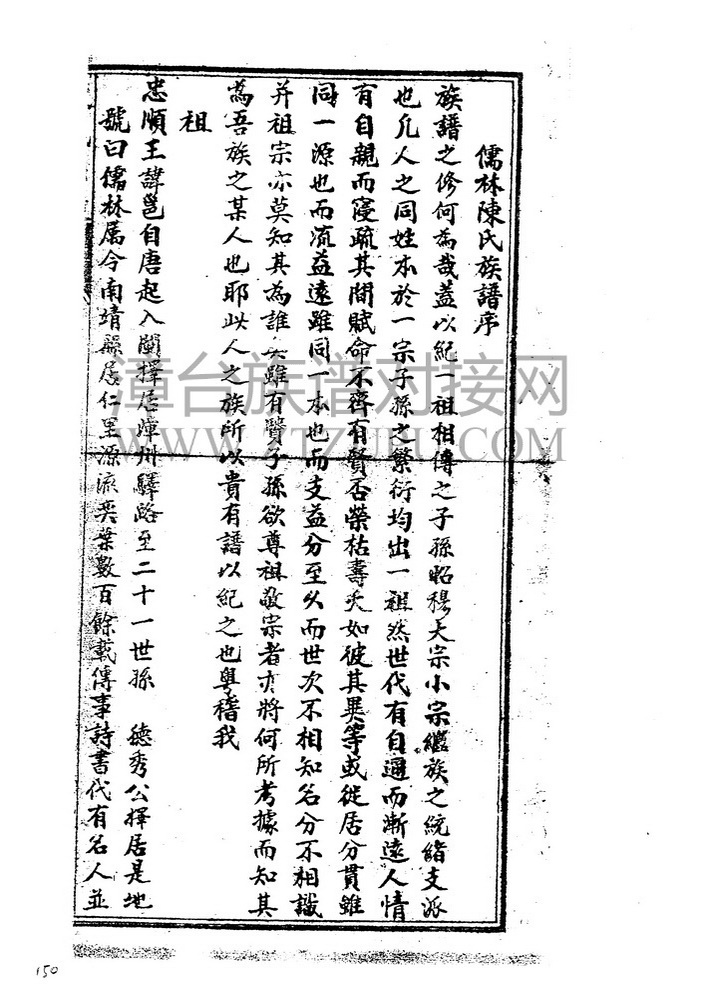 儒林陳氏族譜序
族譜之修何為哉蓋以紀一祖相傳之子孫昭穆大宗小宗繼族之統緒支派
也凡人之同姓本於一宗子孫之繁衍均出一祖然世代有自邇而漸遠人情
有自親而寖疏其間賦命不齊有賢否榮枯壽夭如彼其異等或從居分貫雖
同一源也而流益遠雖同一本也而支益分至久而世次不相知名分不相識
并祖宗亦莫知其為誰矣雖有賢子孫欲尊祖敬宗者亦將何所考據而知其
為吾族之某人也耶此人之族所以貴有譜以紀之也粵稽我
祖
忠順王諱邕自唐起入閩擇居漳州驛路至二十一世孫 德秀公擇居是地
號曰儒林屬今南靖縣居仁里源流奕葉數百餘載傳事詩書代有名人並
漳台族谱对接网
WWW.ZTZUPU.COM
150